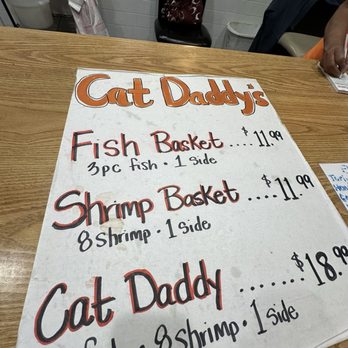 Cat Daddy's
Fish Basket .... $11.99
3pc fish • 1 side
Shrimp Basket .... $11.99
8 shrimp • 1 side
Cat Daddy ....... $18.99
8 shrimp • 1 side